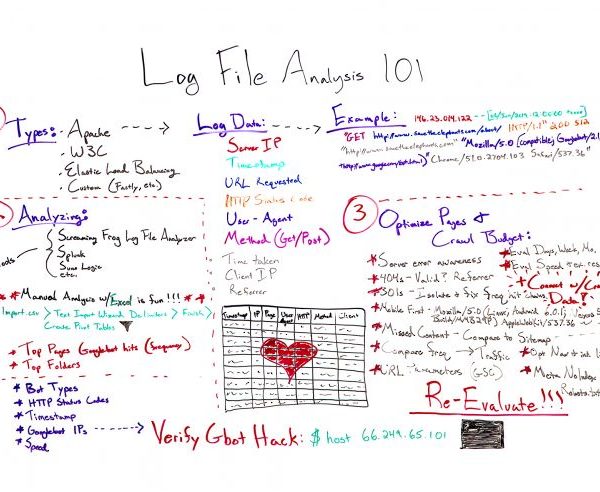 Log File Analysis 101
Types:
Apache
W3C
Elastic Load Balancing
Custom (Fastly, etc)
Log Data:
Server IP
Timestamp
URL Requested
HTTP Status Code
User-Agent
Method (Get/Post)
Time taken
Client IP
Referrer
Example:
146.23.014.122 --
"GET http://www.savetheelephants.com/about/ HTTP/1.1" 200 512
"http://www.savetheelephants.com" "Mozilla/5.0 (compatible; Googlebot/2.1
Chrome/51.0.2704.103 Safari/537.36"
Analyzing:
Screaming Frog Log File Analyzer
Splunk
Sumo Logic
etc.
** Manual Analysis w/Excel is fun!!! **
Import csv > Text Import Wizard Delimiters > Finish >
Create Pivot Tables
* Top Pages Googlebot hits (frequency)
* Top Folders
* Bot Types
* HTTP Status Codes
* Timestamp
* Googlebot IPs
* Speed
Timestamp IP Page User Agent HTTP Method Client
3
Optimize Pages &
Crawl Budget:
* Server error awareness
* 404s - Valid? Referrer
* 301s - Isolate & fix freq hit chains
* Mobile First - Mozilla/5.0 (Linux; Android 6.0.1;
AppleWebKit/537.36
* Missed Content - Compare to Sitemap
* Compare freq → Traffic
* URL Parameters (GSC)
* Eval Days, Week, Mo.
* Eval Speed
+ Connect w/
Data?
* Meta NoIndex
Robots.txt
Re-Evaluate!!!
Verify Gbot Hack: $ host 66.249.65.101